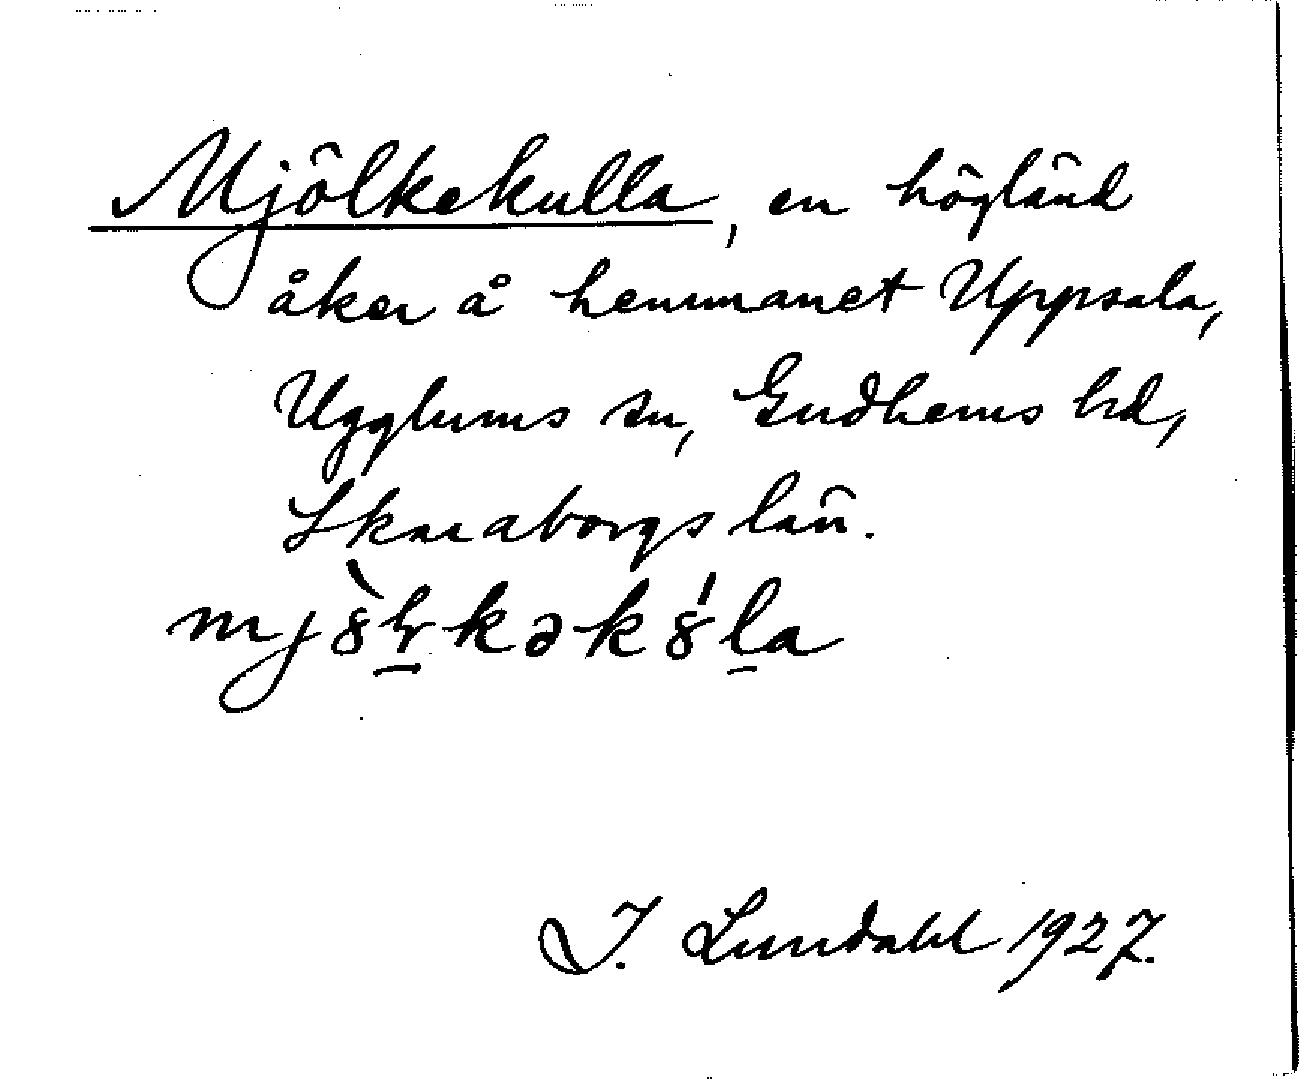 Mjölkekulla, en högländ
åker å hemmanet Uppsala,
Ugglums sn, Gudhems hd,
Skaraborgs län.
mjȣ̀ɽ̱kəkȣ́ḻa
I. Lundahl 1927.